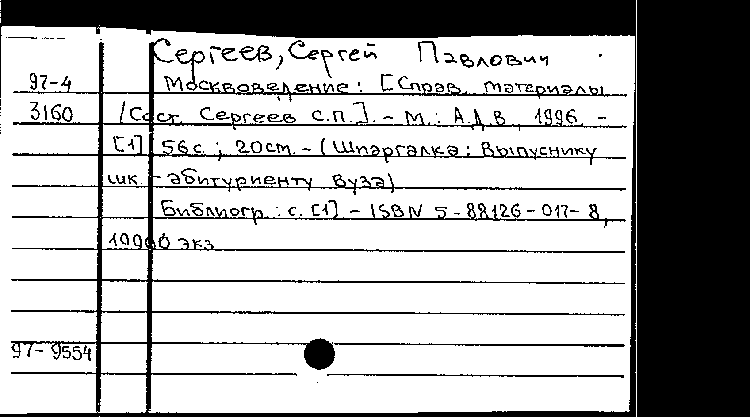 Сергеев, Сергей Павлович
97-4 Москвоведение: [Справ. материалы
3160 /Сост. Сергеев С.П.]. - М.: АДВ, 1996. -
[1] 56с.; 20см. - (Шпаргалка: Выпускнику
шк. - абитуриенту вуза)
Библиогр.: с. [1] - ISBN 5-88126-017-8,
экз.
97-9554